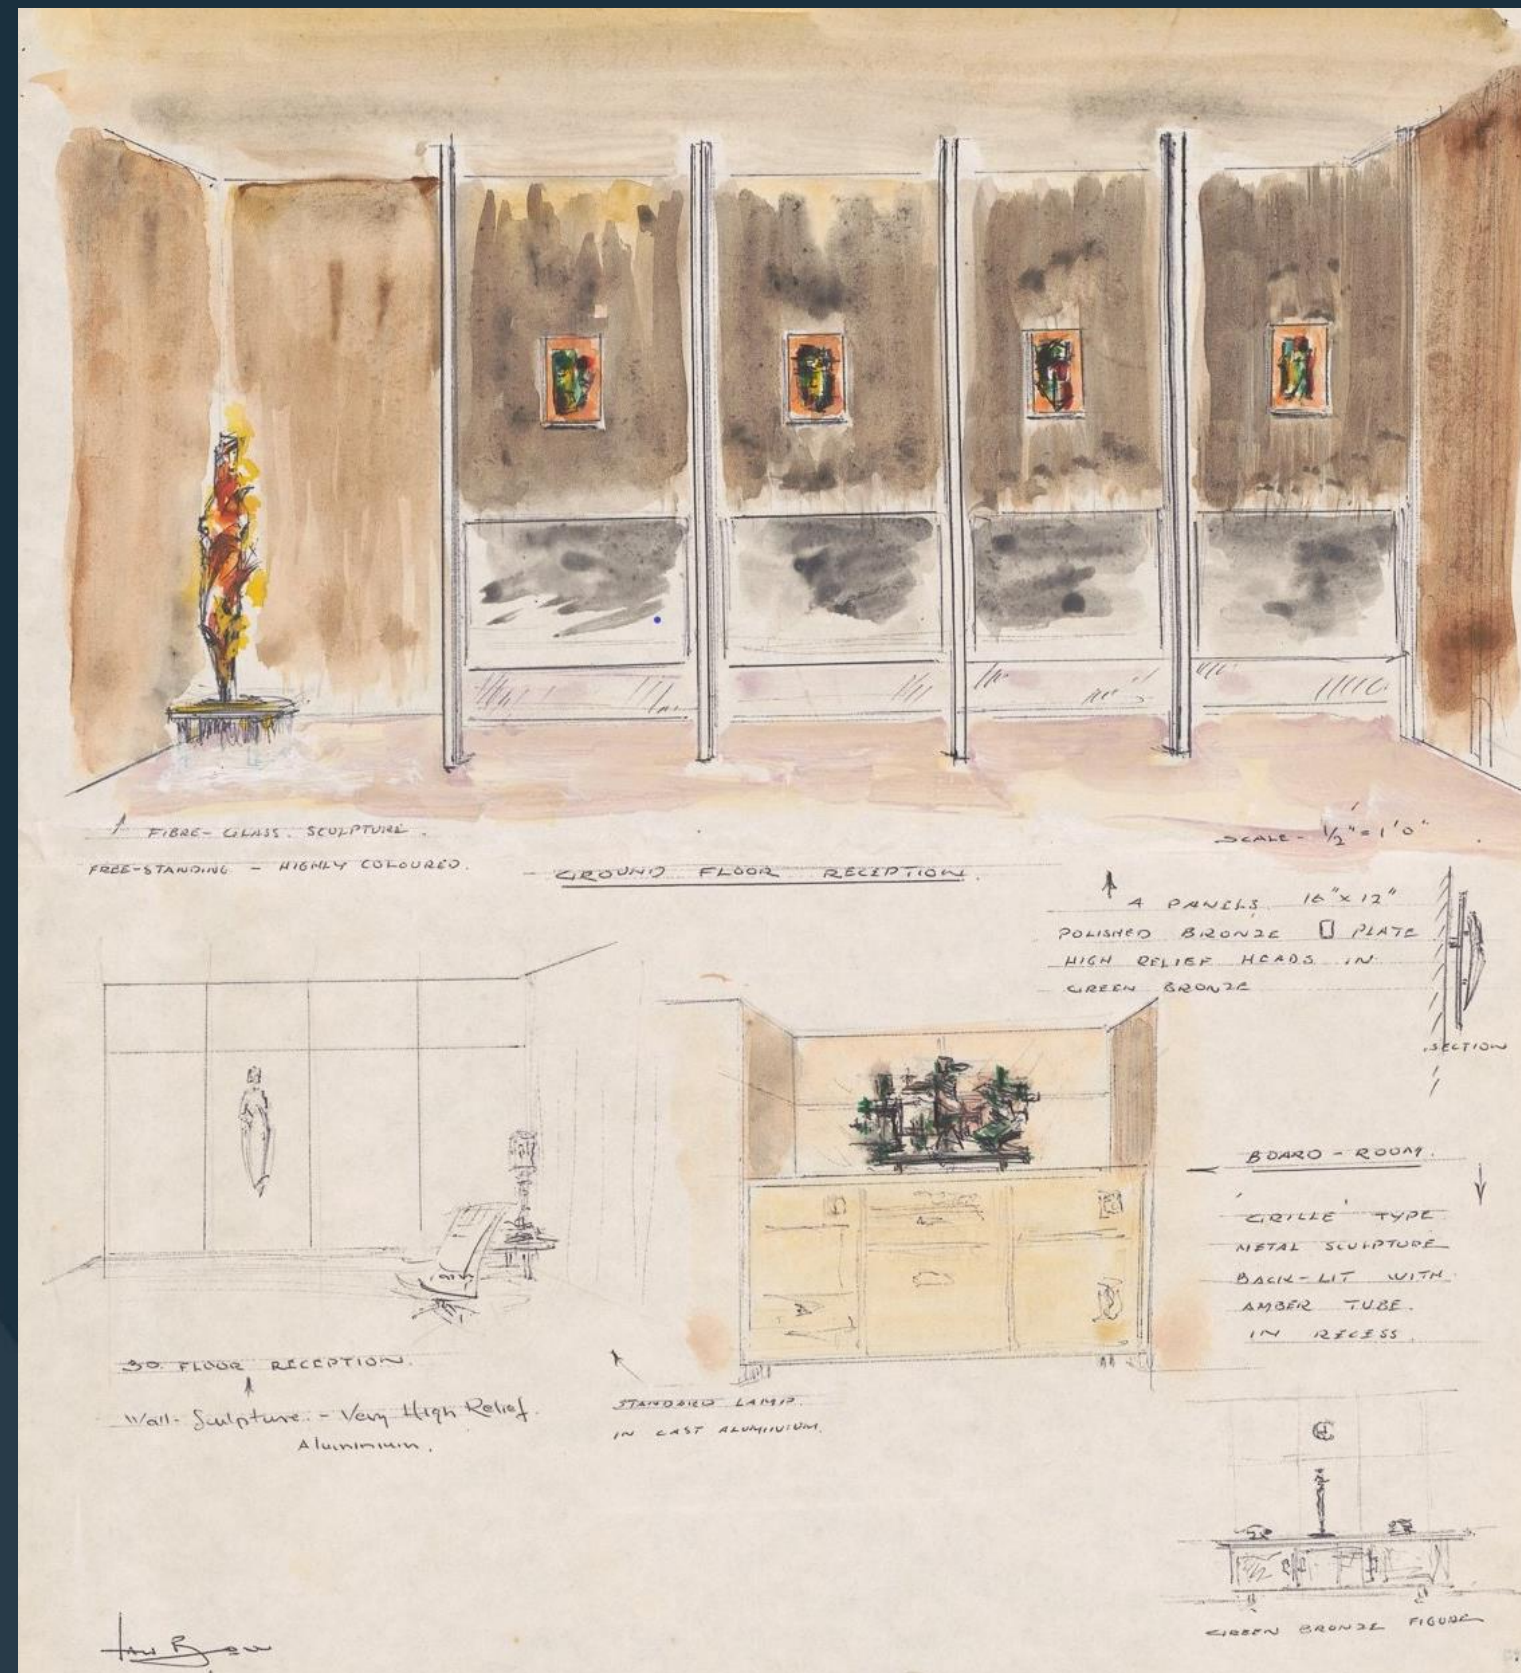 FIBRE-GLASS. SCULPTURE.
FREE-STANDING - HIGHLY COLOURED.
GROUND FLOOR RECEPTION.
SCALE - 1/2" = 1'0"
4 PANELS. 16" x 12"
POLISHED BRONZE PLATE
HIGH RELIEF HEADS IN
GREEN BRONZE
SECTION
BOARD-ROOM.
'GRILLE' TYPE
METAL SCULPTURE
BACK-LIT WITH
AMBER TUBE.
IN RECESS.
FLOOR RECEPTION.
Wall-Sculpture. - Very High Relief.
Aluminium.
STANDARD LAMP.
IN CAST ALUMINIUM.
GREEN BRONZE FIGURE
Ian Bow